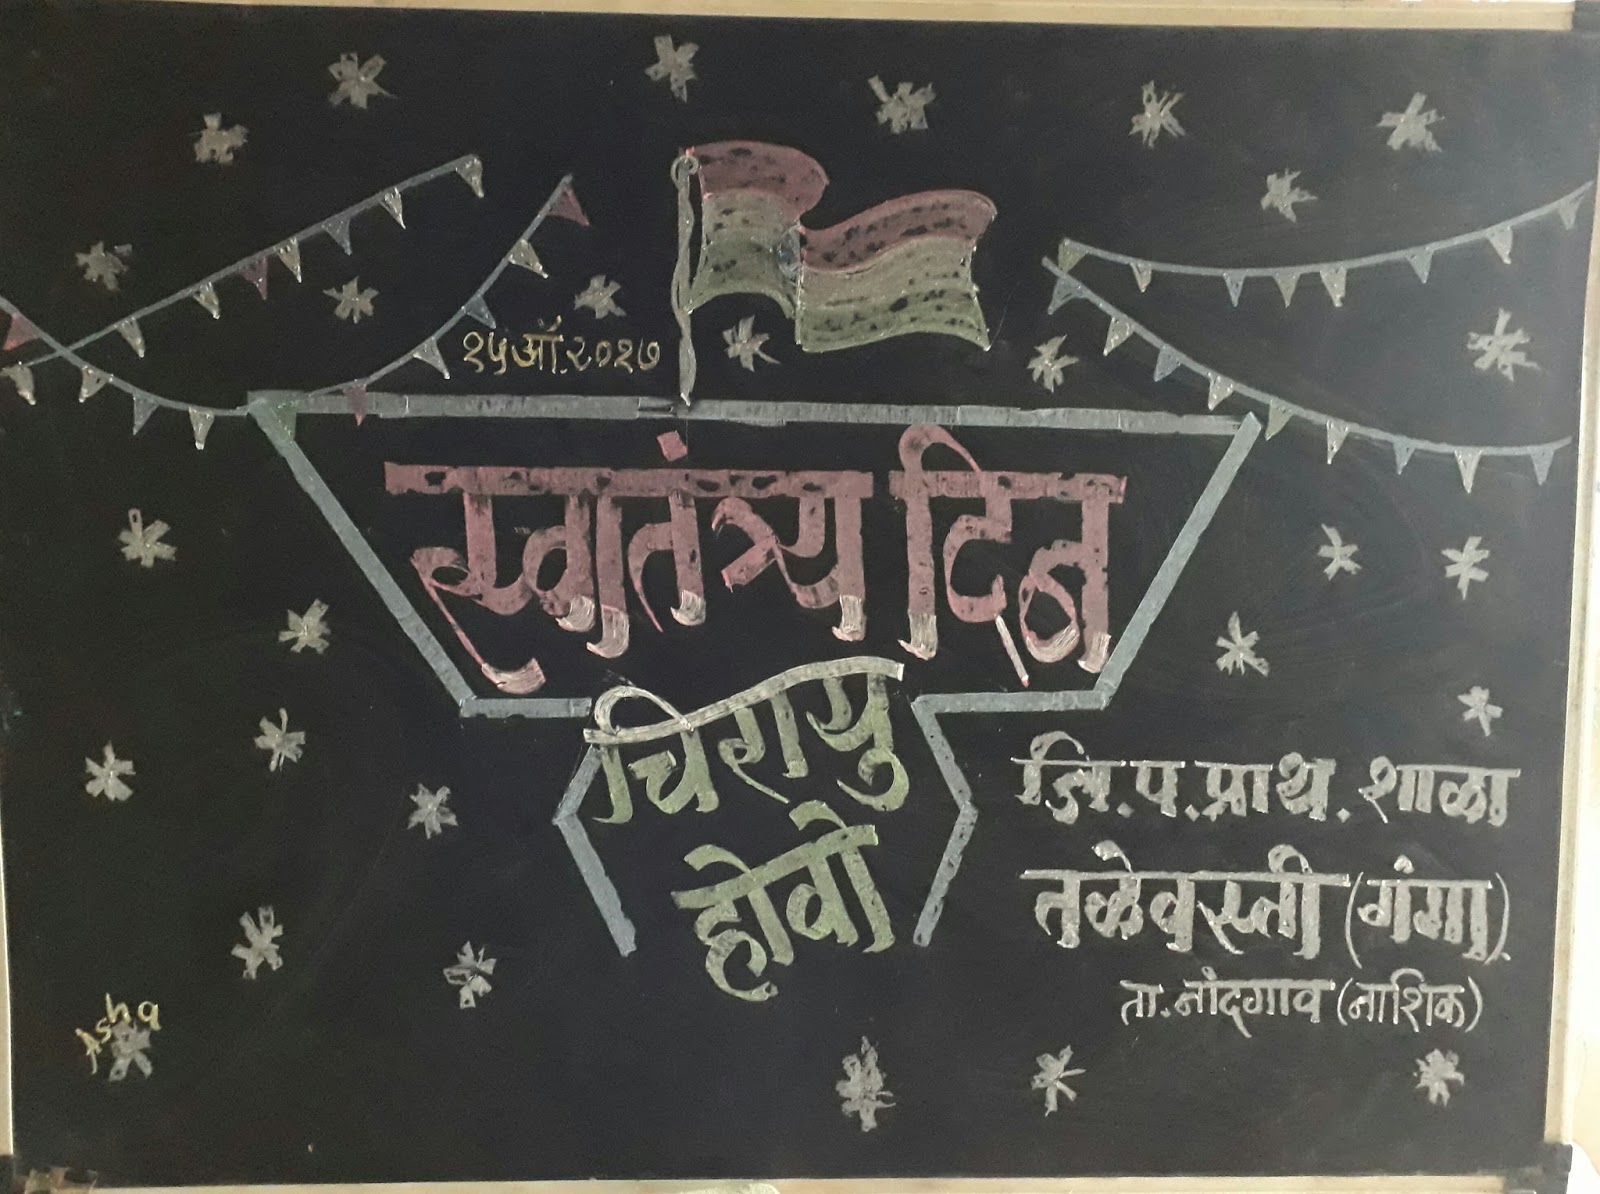 १५ऑ.२०१७
स्वातंत्र्य दिन
चिरायु
होवो
जि.प.प्राथ.शाळा
तळेवस्ती(गंगा).
ता.नांदगाव(नाशिक)
Asha